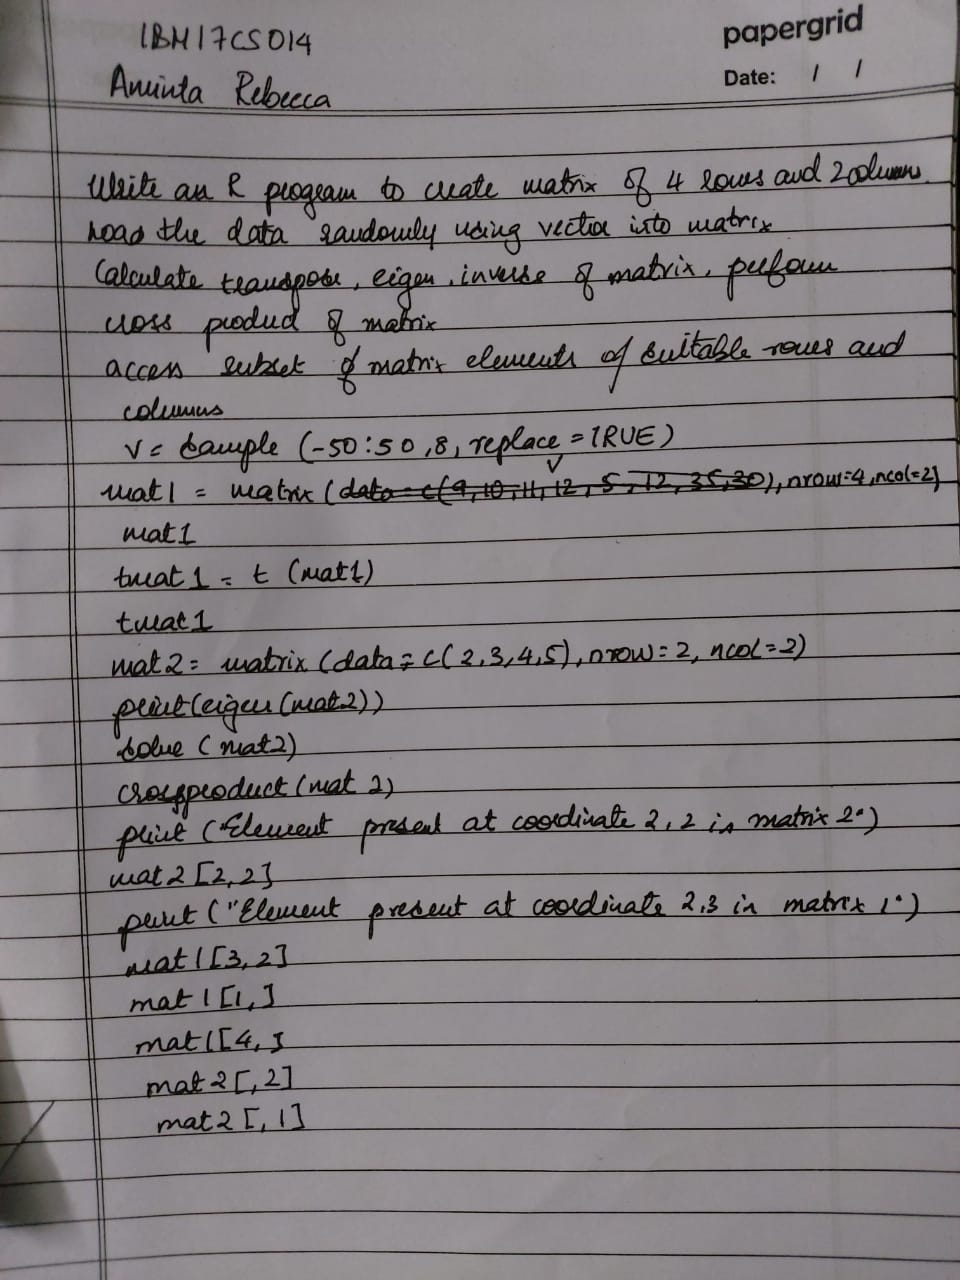 1BM17CS014
papergrid
Date: / /
Rebecca
Write an R program to create matrix of 4 rows and 2 columns
Load the data randomly using vector into matrix
Calculate transpose, eigen, inverse of matrix, perform
cross product of matrix
access subset of matrix elements of suitable rows and
columns
v = sample (-50:50,8, replace = TRUE)
v
mat1 = matrix (data = c(9,10,11,12,5,12,35,30), nrow=4,ncol=2)
mat1
tmat1 = t (mat1)
tmat1
mat2 = matrix (data = c(2,3,4,5), nrow=2, ncol=2)
print(eigen(mat2))
solve (mat2)
crossproduct (mat 2)
print ("Element present at coordinate 2,2 in matrix 2")
mat2 [2,2]
print ("Element present at coordinate 2,3 in matrix 1")
mat1 [3,2]
mat1 [1,]
mat1[4,]
mat2 [,2]
mat2 [,1]